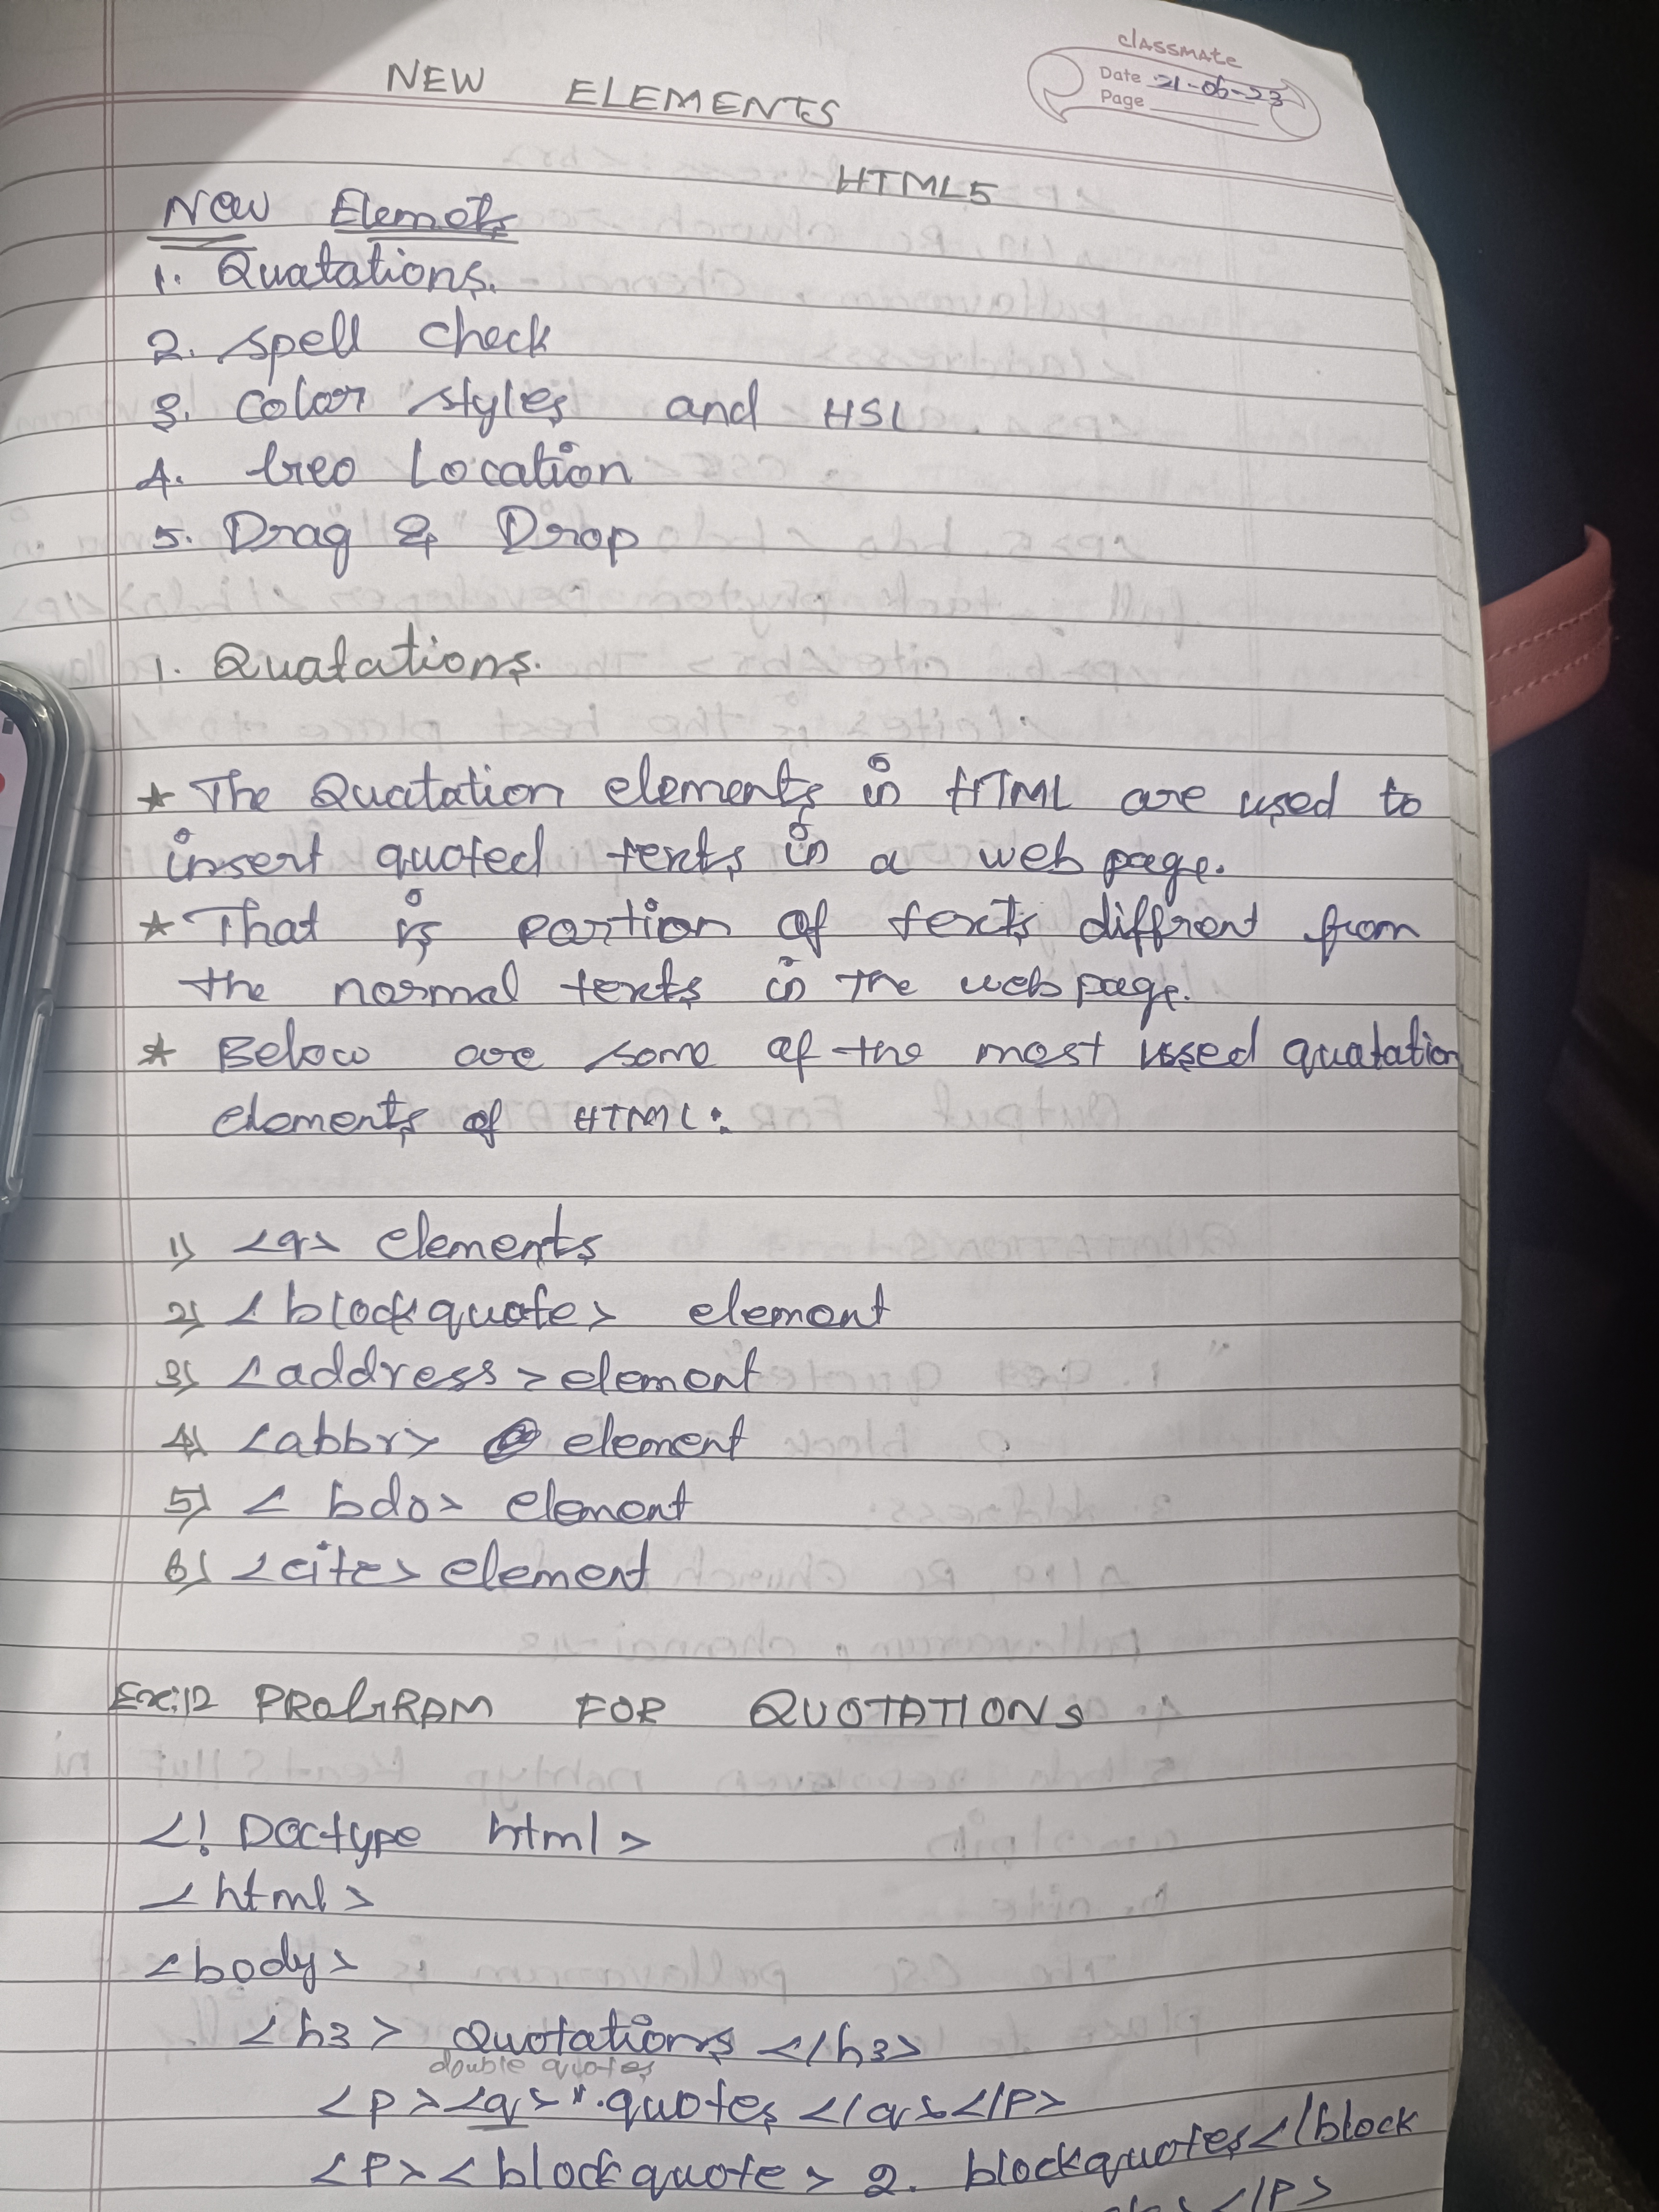 classmate
Date 21-06-23
Page
NEW ELEMENTS
HTML5
New Elemets
1. Quatations.
2. Spell check
3. Color styles and HSL
4. Geo Location
5. Drag & Drop
1. Quatations.
* The Quatation elements in HTML are used to
insert quoted texts in a web page.
* That is portion of texts diffrent from
the normal texts in the web page.
* Below are some of the most used quatation
elements of HTML:
1) <q> elements
2) <blockquote> element
3) <address> element
4) <abbr> element
5) <bdo> element
6) <cite> element
Ex:12 PROGRAM FOR QUOTATIONS
<! Doctype html>
<html>
<body>
<h3> Quotations </h3>
double quotes
<p><q> ". quotes </q></p>
<p><blockquote> 2. blockquotes </block
</p>